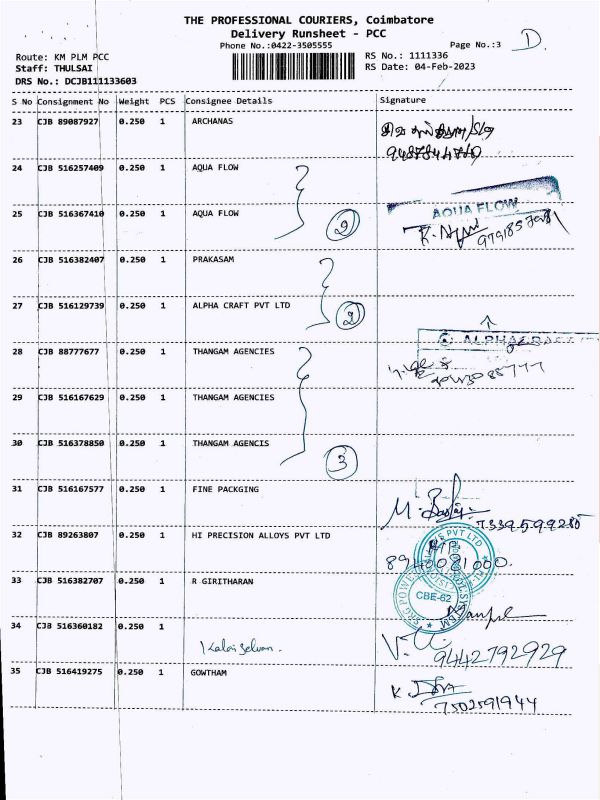 THE PROFESSIONAL COURIERS, Coimbatore
Delivery Runsheet - PCC
Phone No.:0422-3505555
Page No.:3 D
Route: KM PLM PCC
RS No.: 1111336
Staff: THULSAI
RS Date: 04-Feb-2023
DRS No.: DCJB111133603
S No Consignment No Weight PCS Consignee Details Signature
23 CJB 89087927 0.250 1 ARCHANAS
24 CJB 516257409 0.250 1 AQUA FLOW
AQUA FLOW
25 CJB 516367410 0.250 1 AQUA FLOW
2
26 CJB 516382407 0.250 1 PRAKASAM
27 CJB 516129739 0.250 1 ALPHA CRAFT PVT LTD
2
28 CJB 88777677 0.250 1 THANGAM AGENCIES
29 CJB 516167629 0.250 1 THANGAM AGENCIES
30 CJB 516378850 0.250 1 THANGAM AGENCIS
3
31 CJB 516167577 0.250 1 FINE PACKGING
7339599285
32 CJB 89263807 0.250 1 HI PRECISION ALLOYS PVT LTD
8940081000.
33 CJB 516382707 0.250 1 R GIRITHARAN
CBE-62
34 CJB 516360182 0.250 1
Kalai Selvan.
9442792929
35 CJB 516419275 0.250 1 GOWTHAM
7502591944